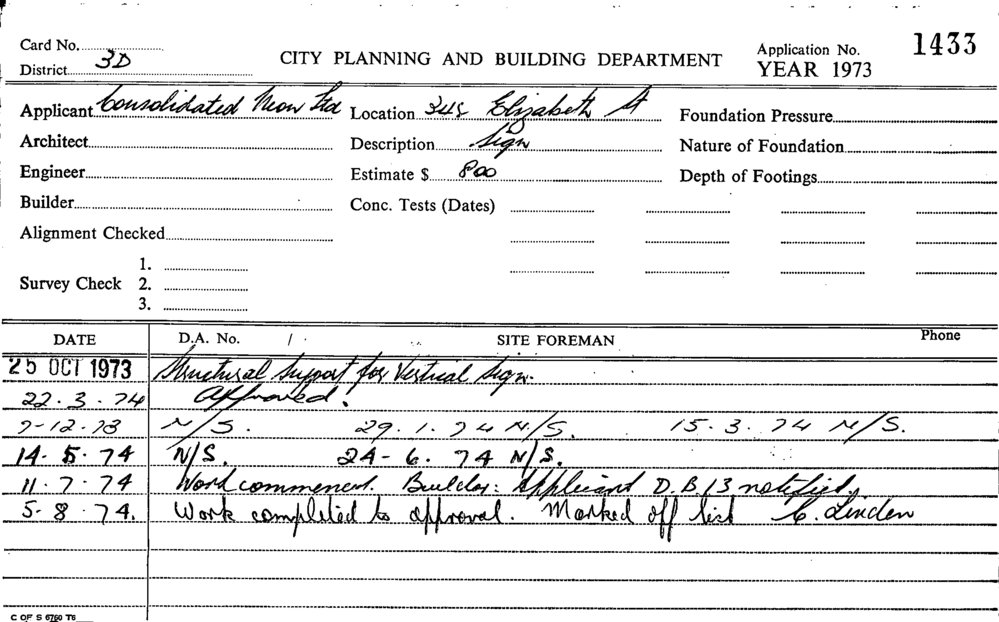 Card No.
District 3D
CITY PLANNING AND BUILDING DEPARTMENT
Application No. 1433
YEAR 1973
Applicant Consolidated Neon Ltd Location 348 Elizabeth St Foundation Pressure
Architect Description Sign Nature of Foundation
Engineer Estimate $ 800 Depth of Footings
Builder Conc. Tests (Dates)
Alignment Checked
1.
Survey Check 2.
3.
DATE D.A. No. / SITE FOREMAN Phone
25 OCT 1973 Structural Support for Vertical Sign.
22.3.74 Approved.
7-12.73 N/S. 29.1.74 N/S. 15.3.74 N/S.
14.5.74 N/S. 24-6.74 N/S.
11.7.74 Work commenced. Builder: Applicant D.B.13 notified.
5.8.74. Work completed to approval. Marked off list C. Linden
C OF S 6760 T6